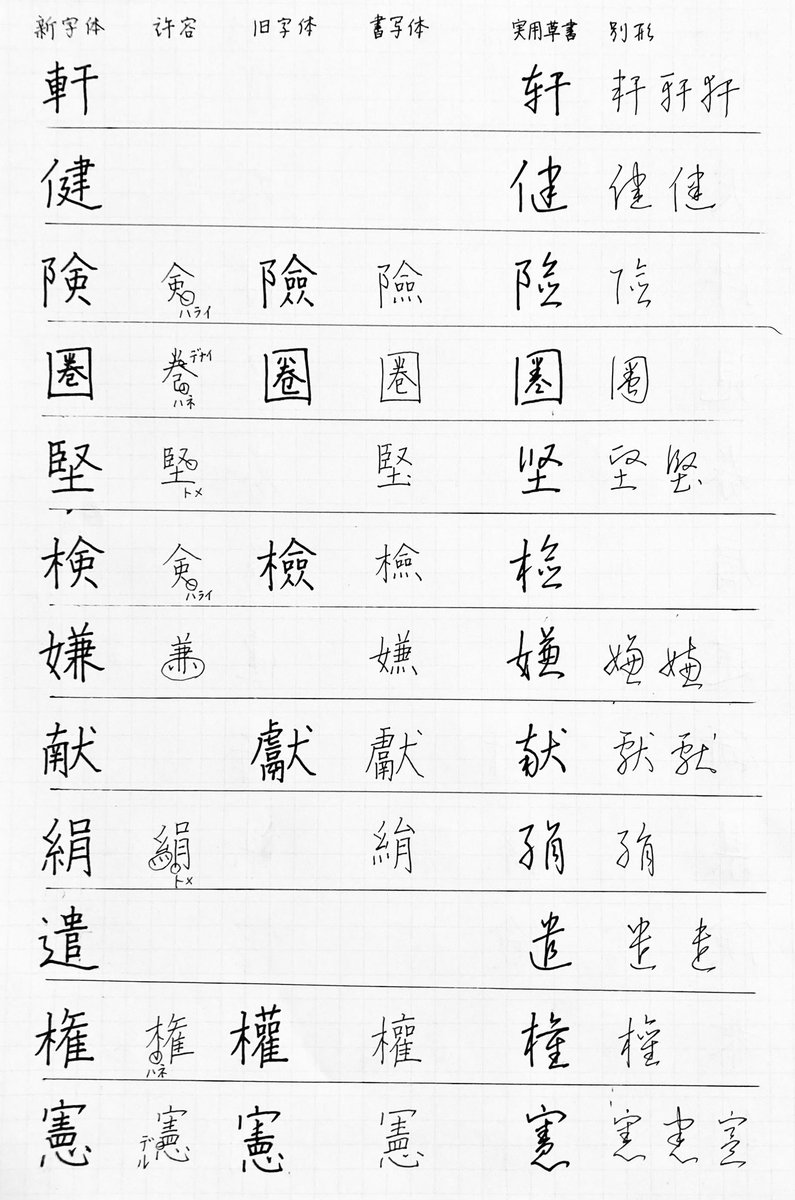 新字体 許容 旧字体 書写体 実用草書 別形
軒 轩 軒 軒 軒
健 健 健 健
険 㑒 ハライ 險 険 険 険
圏 巻 デナイ ハネ 圈 圏 圏 圏
堅 堅 トメ 堅 坚 堅 堅
検 㑒 ハライ 檢 検 検
嫌 兼 嫌 嫌 嫌 嫌
献 獻 獻 献 献 献
絹 絹 トメ 絹 絹 絹
遣 遣 遣 遣
権 権 ハネ 權 權 権 権
憲 憲 デル 憲 憲 憲 憲 憲 憲